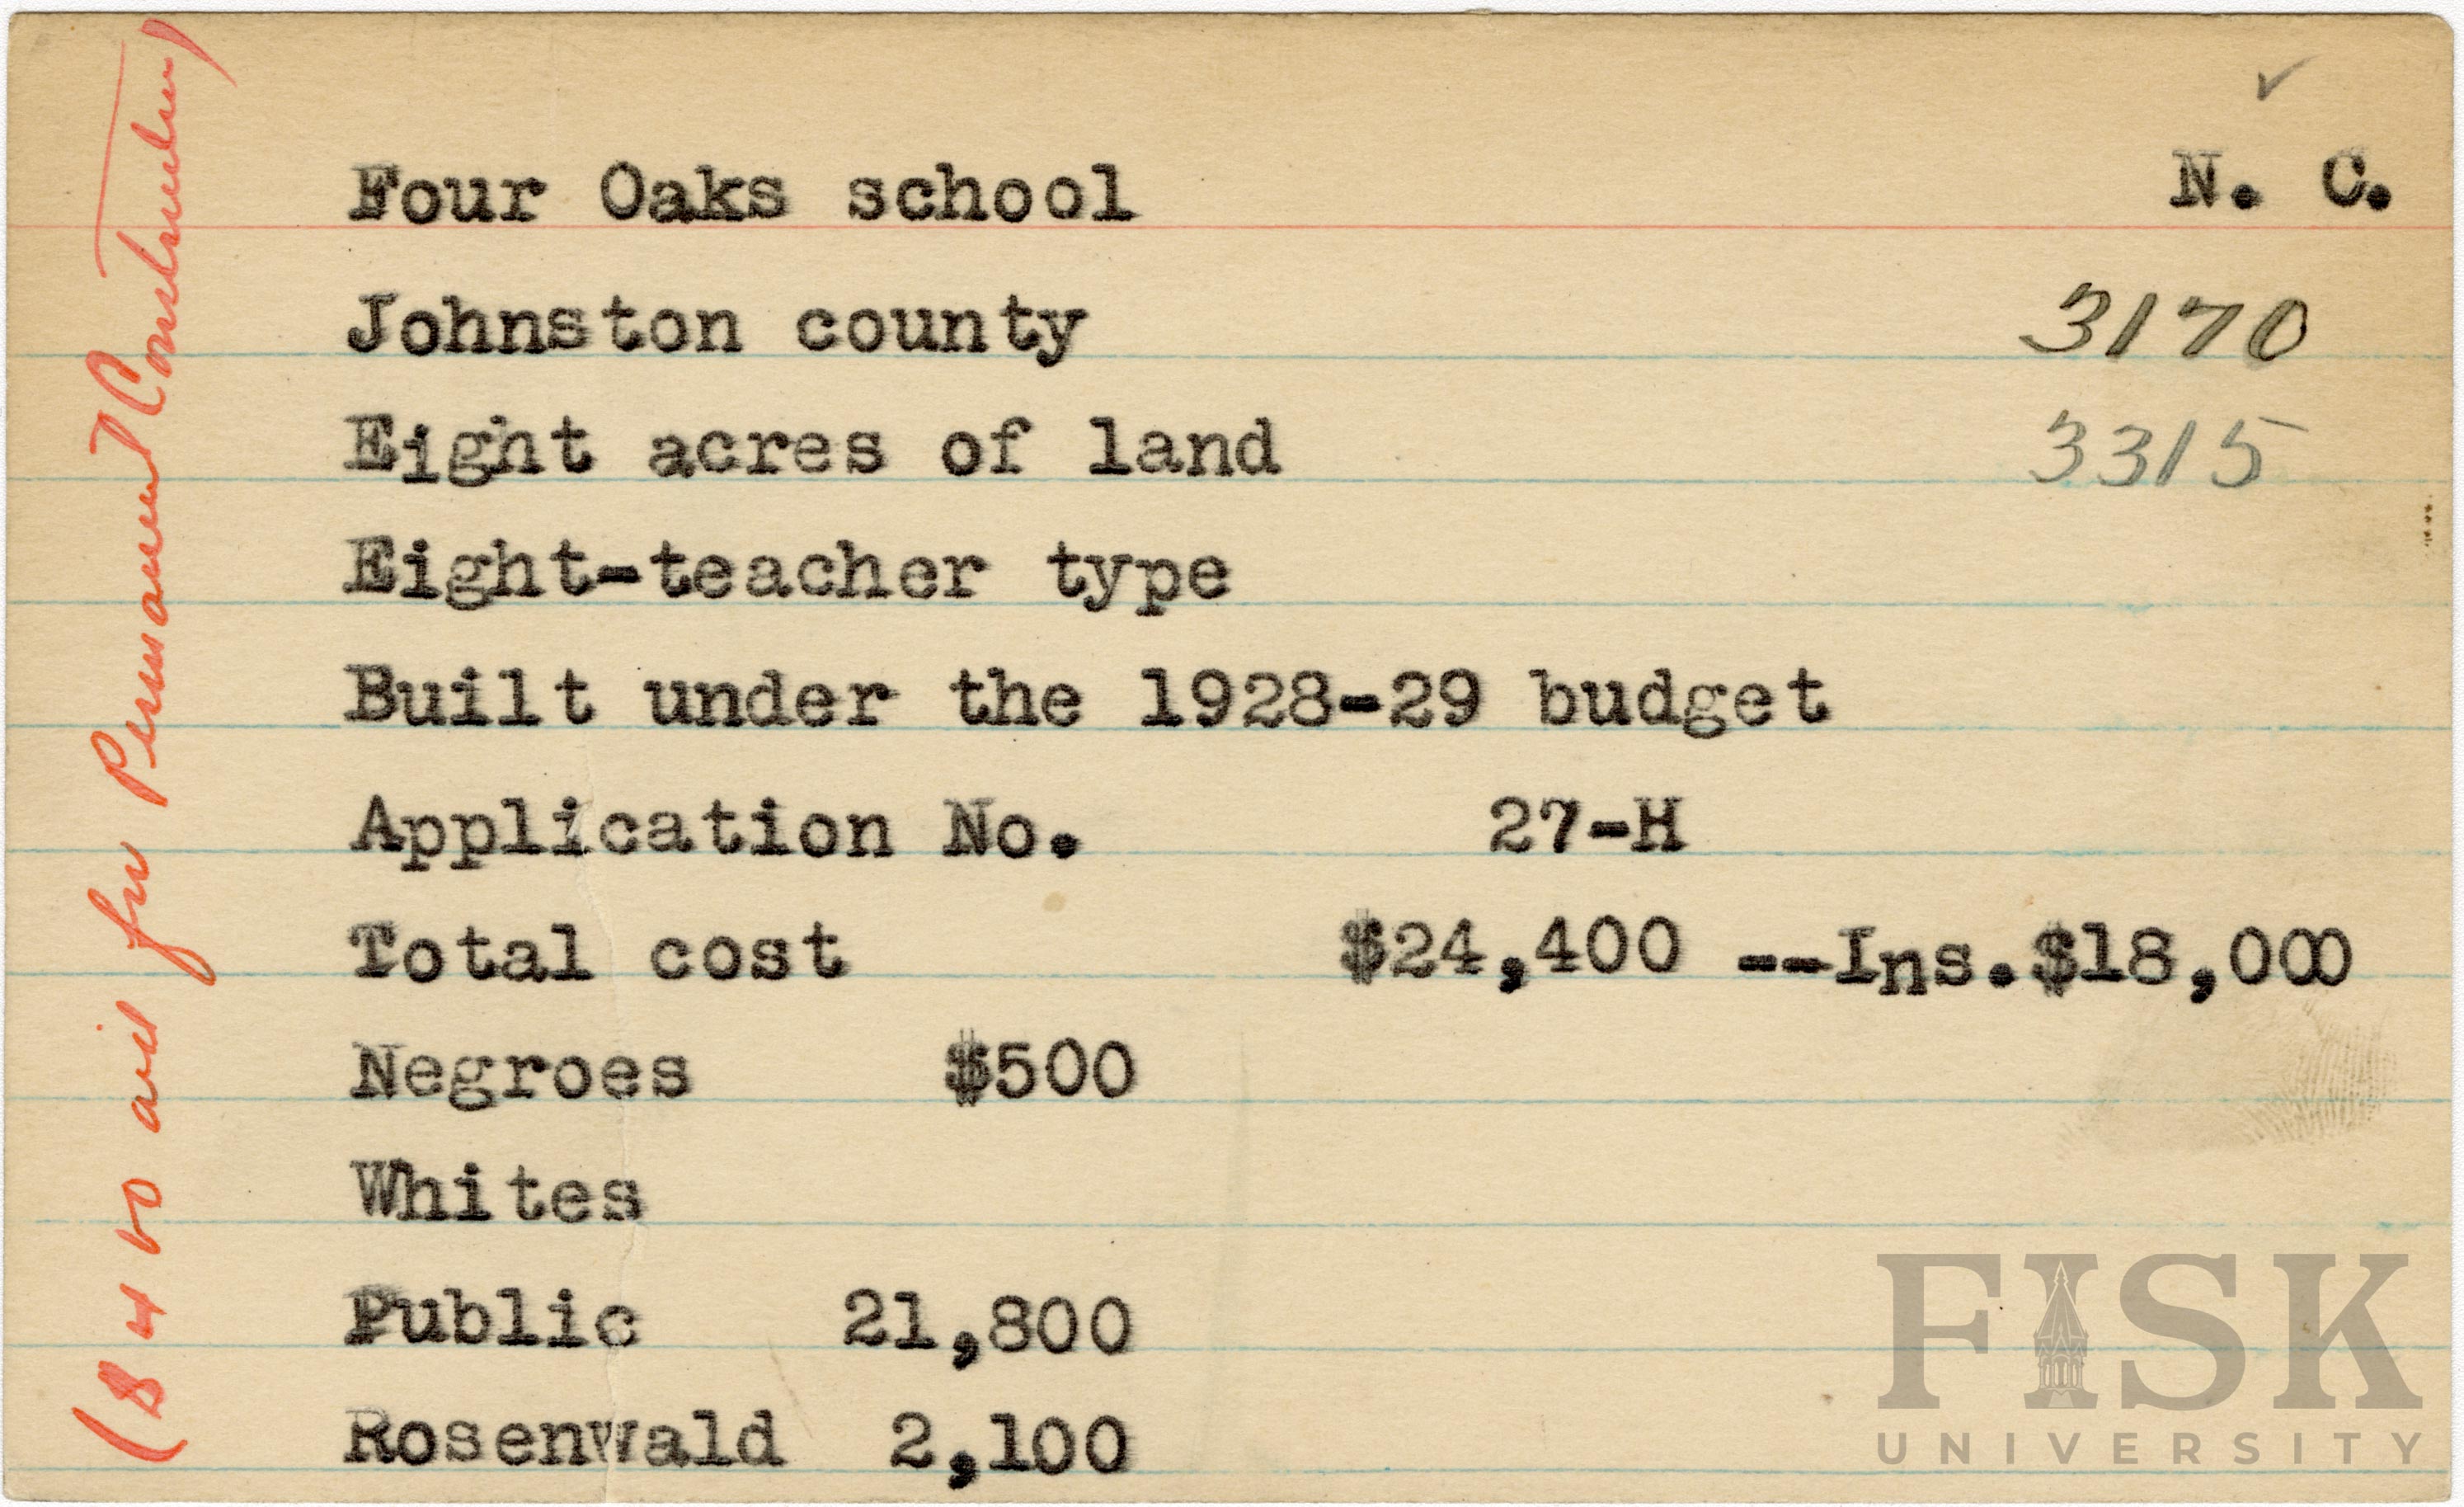 Four Oaks school N. C.
Johnston county 3170
Eight acres of land 3315
Eight-teacher type
Built under the 1928-29 budget
Application No. 27-H
Total cost $24,400 --Ins.$18,000
Negroes $500
Whites
Public 21,800
Rosenwald 2,100
aid for Permanent Construction)
FISK
UNIVERSITY